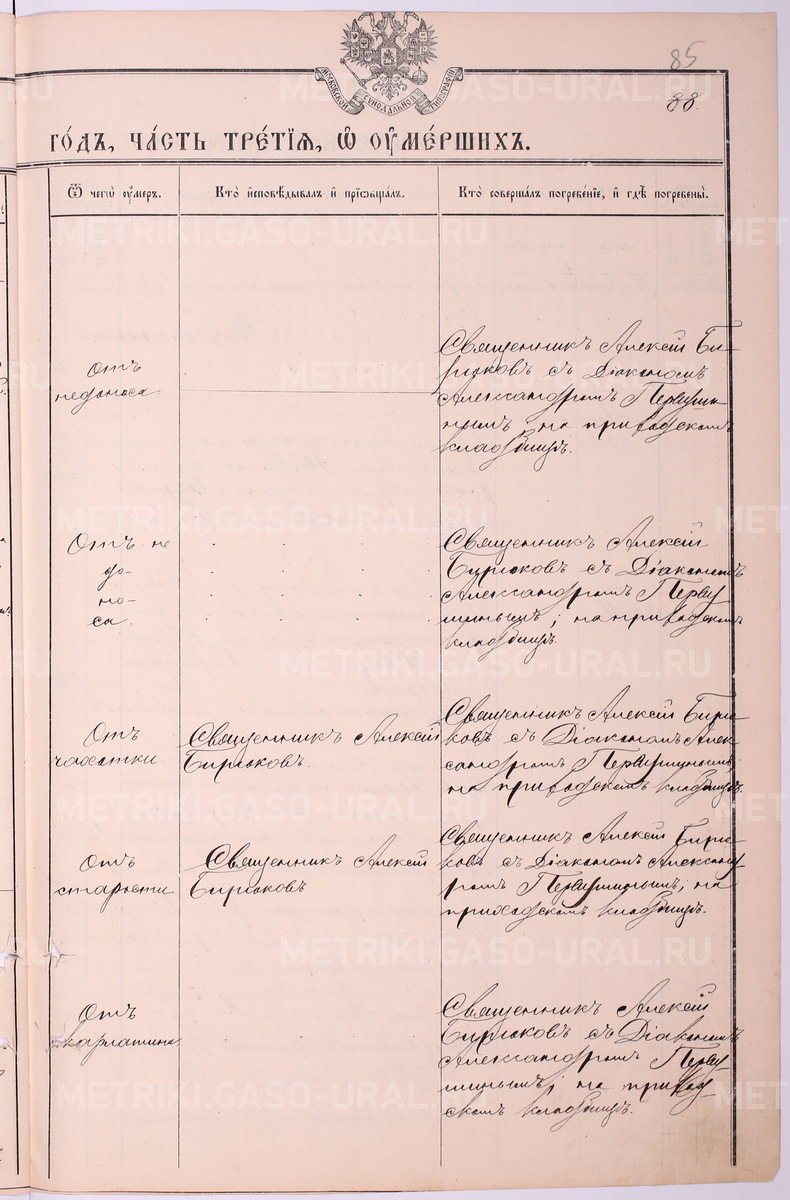 МОСКОВСКОЙ СѴНОДАЛЬНОЙ ТИПОГРАФІИ
85
88.
ГО́ДЪ, ЧА́СТЬ ТРЕ́ТІѦ, Ѡ҆ ОУ҆МЕ́РШИХЪ.
Ѿ чегѡ̀ оу҆́меръ.
Кто̀ и҆сповѣ́дывалъ и҆ прїѡбща́лъ.
Кто̀ соверша́лъ погребе́нїе, и҆ гдѣ̀ погребены̀.
Отъ
недоноса
Священникъ Алексій Би-
рюковъ съ Діакономъ
Александромъ Первуши-
нымъ, на приходскомъ
кладбищѣ.
Отъ не
до-
но-
са.
Священникъ Алексій
Бирюковъ съ Діакономъ
Александромъ Перву
шинымъ; на приходскомъ
кладбищѣ.
Отъ
чахотки.
Священникъ Алексій
Бирюковъ.
Священникъ Алексій Бирю-
ковъ съ Діакономъ Алек-
сандромъ Первушинымъ
на приходскомъ кладбищѣ
Отъ
старости
Священникъ Алексій
Бирюковъ
Священникъ Алексій Бирю-
ковъ съ Діакономъ Александ-
ромъ Первушинымъ; на
приходскомъ кладбищѣ.
Отъ
скарлатины
Священникъ Алексій
Бирюковъ съ Діакономъ
Александромъ Перву-
шинымъ; на приход-
скомъ кладбищѣ.
METRIKI.GASO-URAL.RU